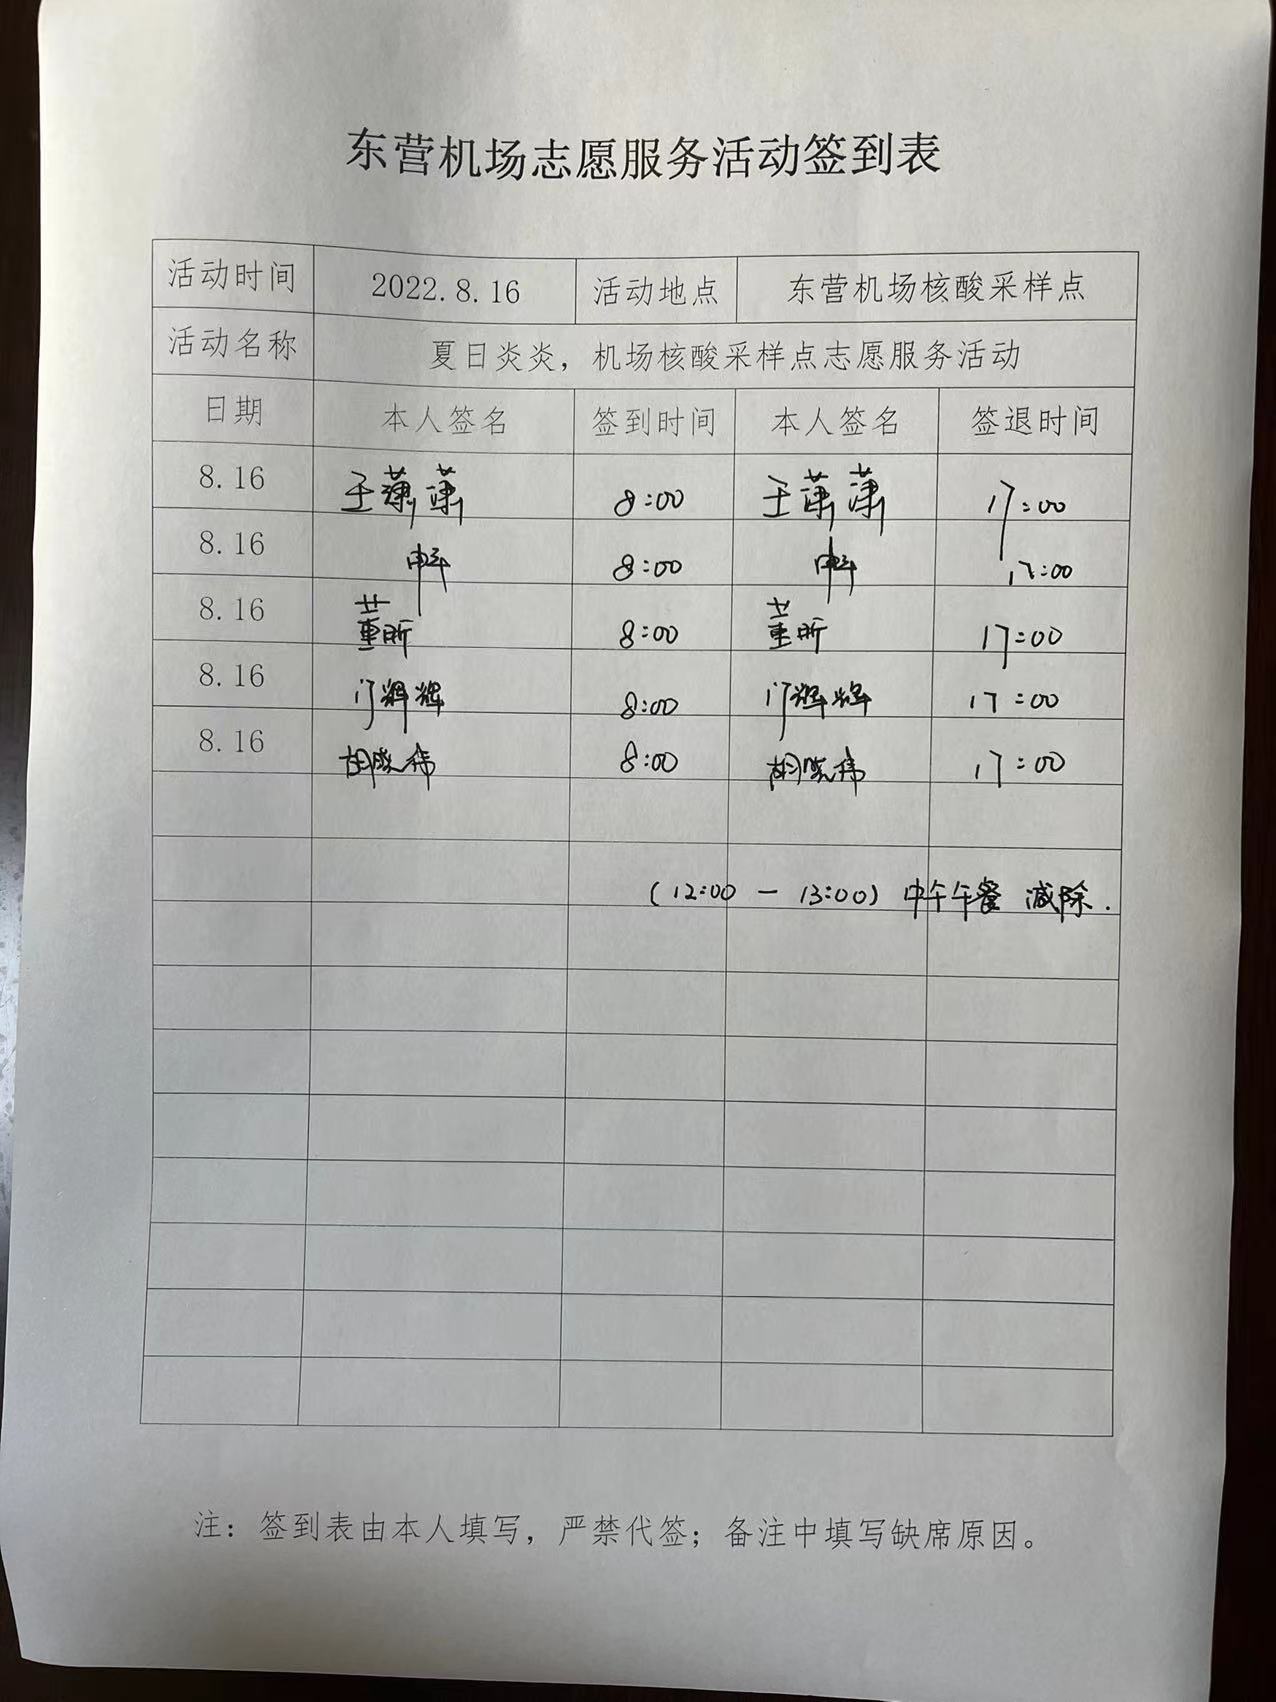 东营机场志愿服务活动签到表
活动时间 2022.8.16 活动地点 东营机场核酸采样点
活动名称 夏日炎炎，机场核酸采样点志愿服务活动
日期 本人签名 签到时间 本人签名 签退时间
8.16 王潇潇 8:00 王潇潇 17:00
8.16 8:00 17:00
8.16 董昕 8:00 董昕 17:00
8.16 门辉辉 8:00 门辉辉 17:00
8.16 胡晓伟 8:00 胡晓伟 17:00
(12:00 — 13:00) 中午午餐 减除.
注：签到表由本人填写，严禁代签；备注中填写缺席原因。